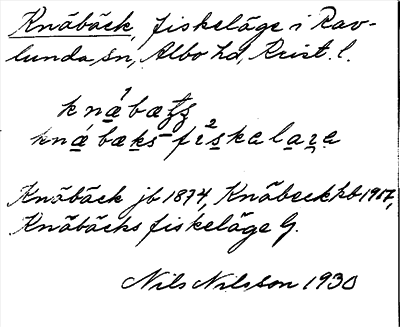 Knäbäck, fiskeläge i Rav-
lunda sn, Albo hd, Krist. l.
knäbæ
knábæks fiskalara
Knäbäck jb 1874, Knäbeck hb 1917,
Knäbäcks fiskeläge G.
Nils Nilsson 1930